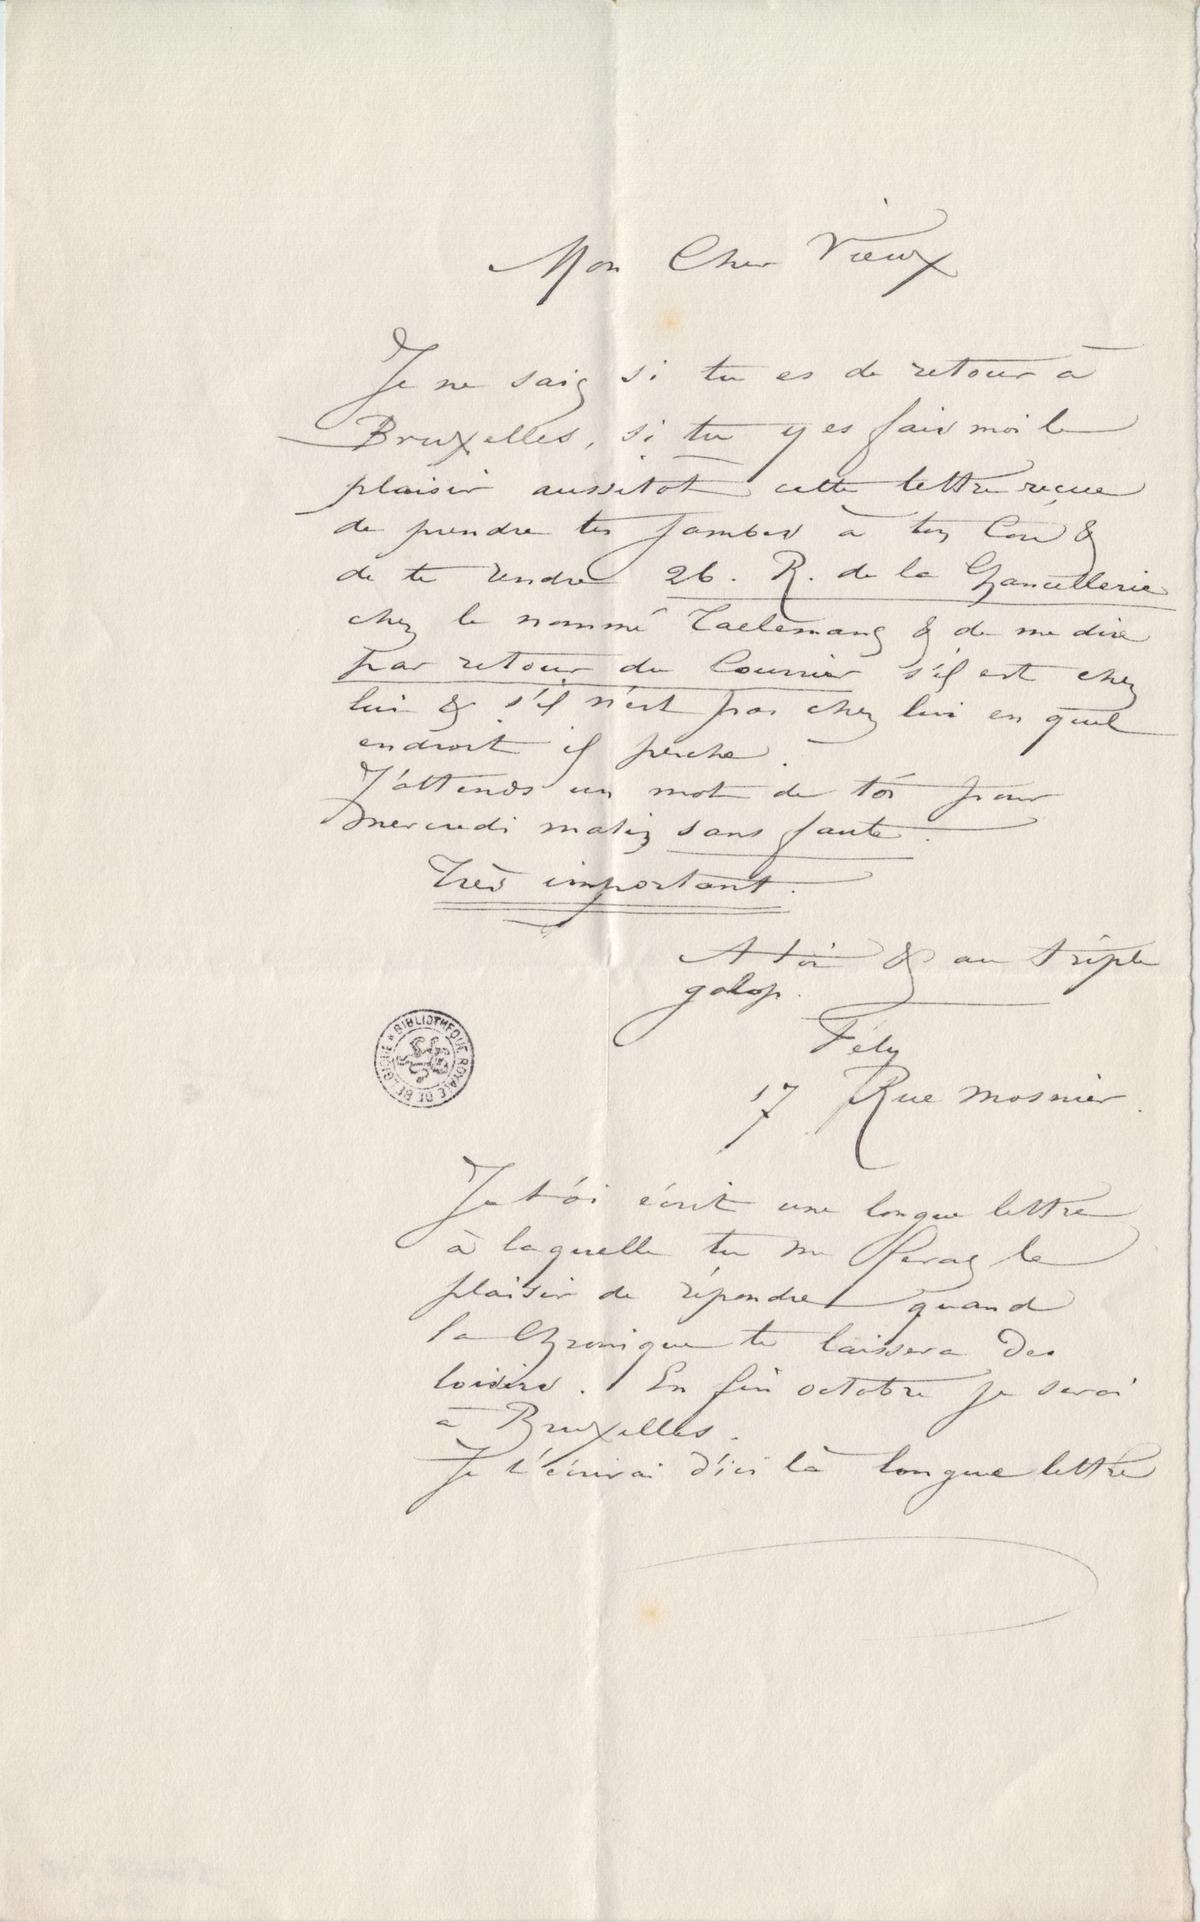 Mon Cher Vieux
Je ne sais si tu es de retour à
Bruxelles, si tu y es fais moi le
plaisir aussitôt cette lettre reçue
de prendre tes jambes à ton Cou &
de te rendre 26. R. de la Chancellerie
chez le nommé Taelemans & de me dire
par retour du Courrier s'il est chez
lui & s'il n'est pas chez lui en quel
endroit il perche.
J'attends un mot de toi pour
mercredi matin sans faute.
Très important.
A toi & au triple
galop.
BIBLIOTHEQUE ROYALE DE BELGIQUE
Fély
17 Rue Mosnier.
Je t'ai écrit une longue lettre
à laquelle tu me feras le
plaisir de répondre quand
la Chronique te laissera des
loisirs. En fin octobre je serai
à Bruxelles.
Je t'écrirai d'ici là longue lettre